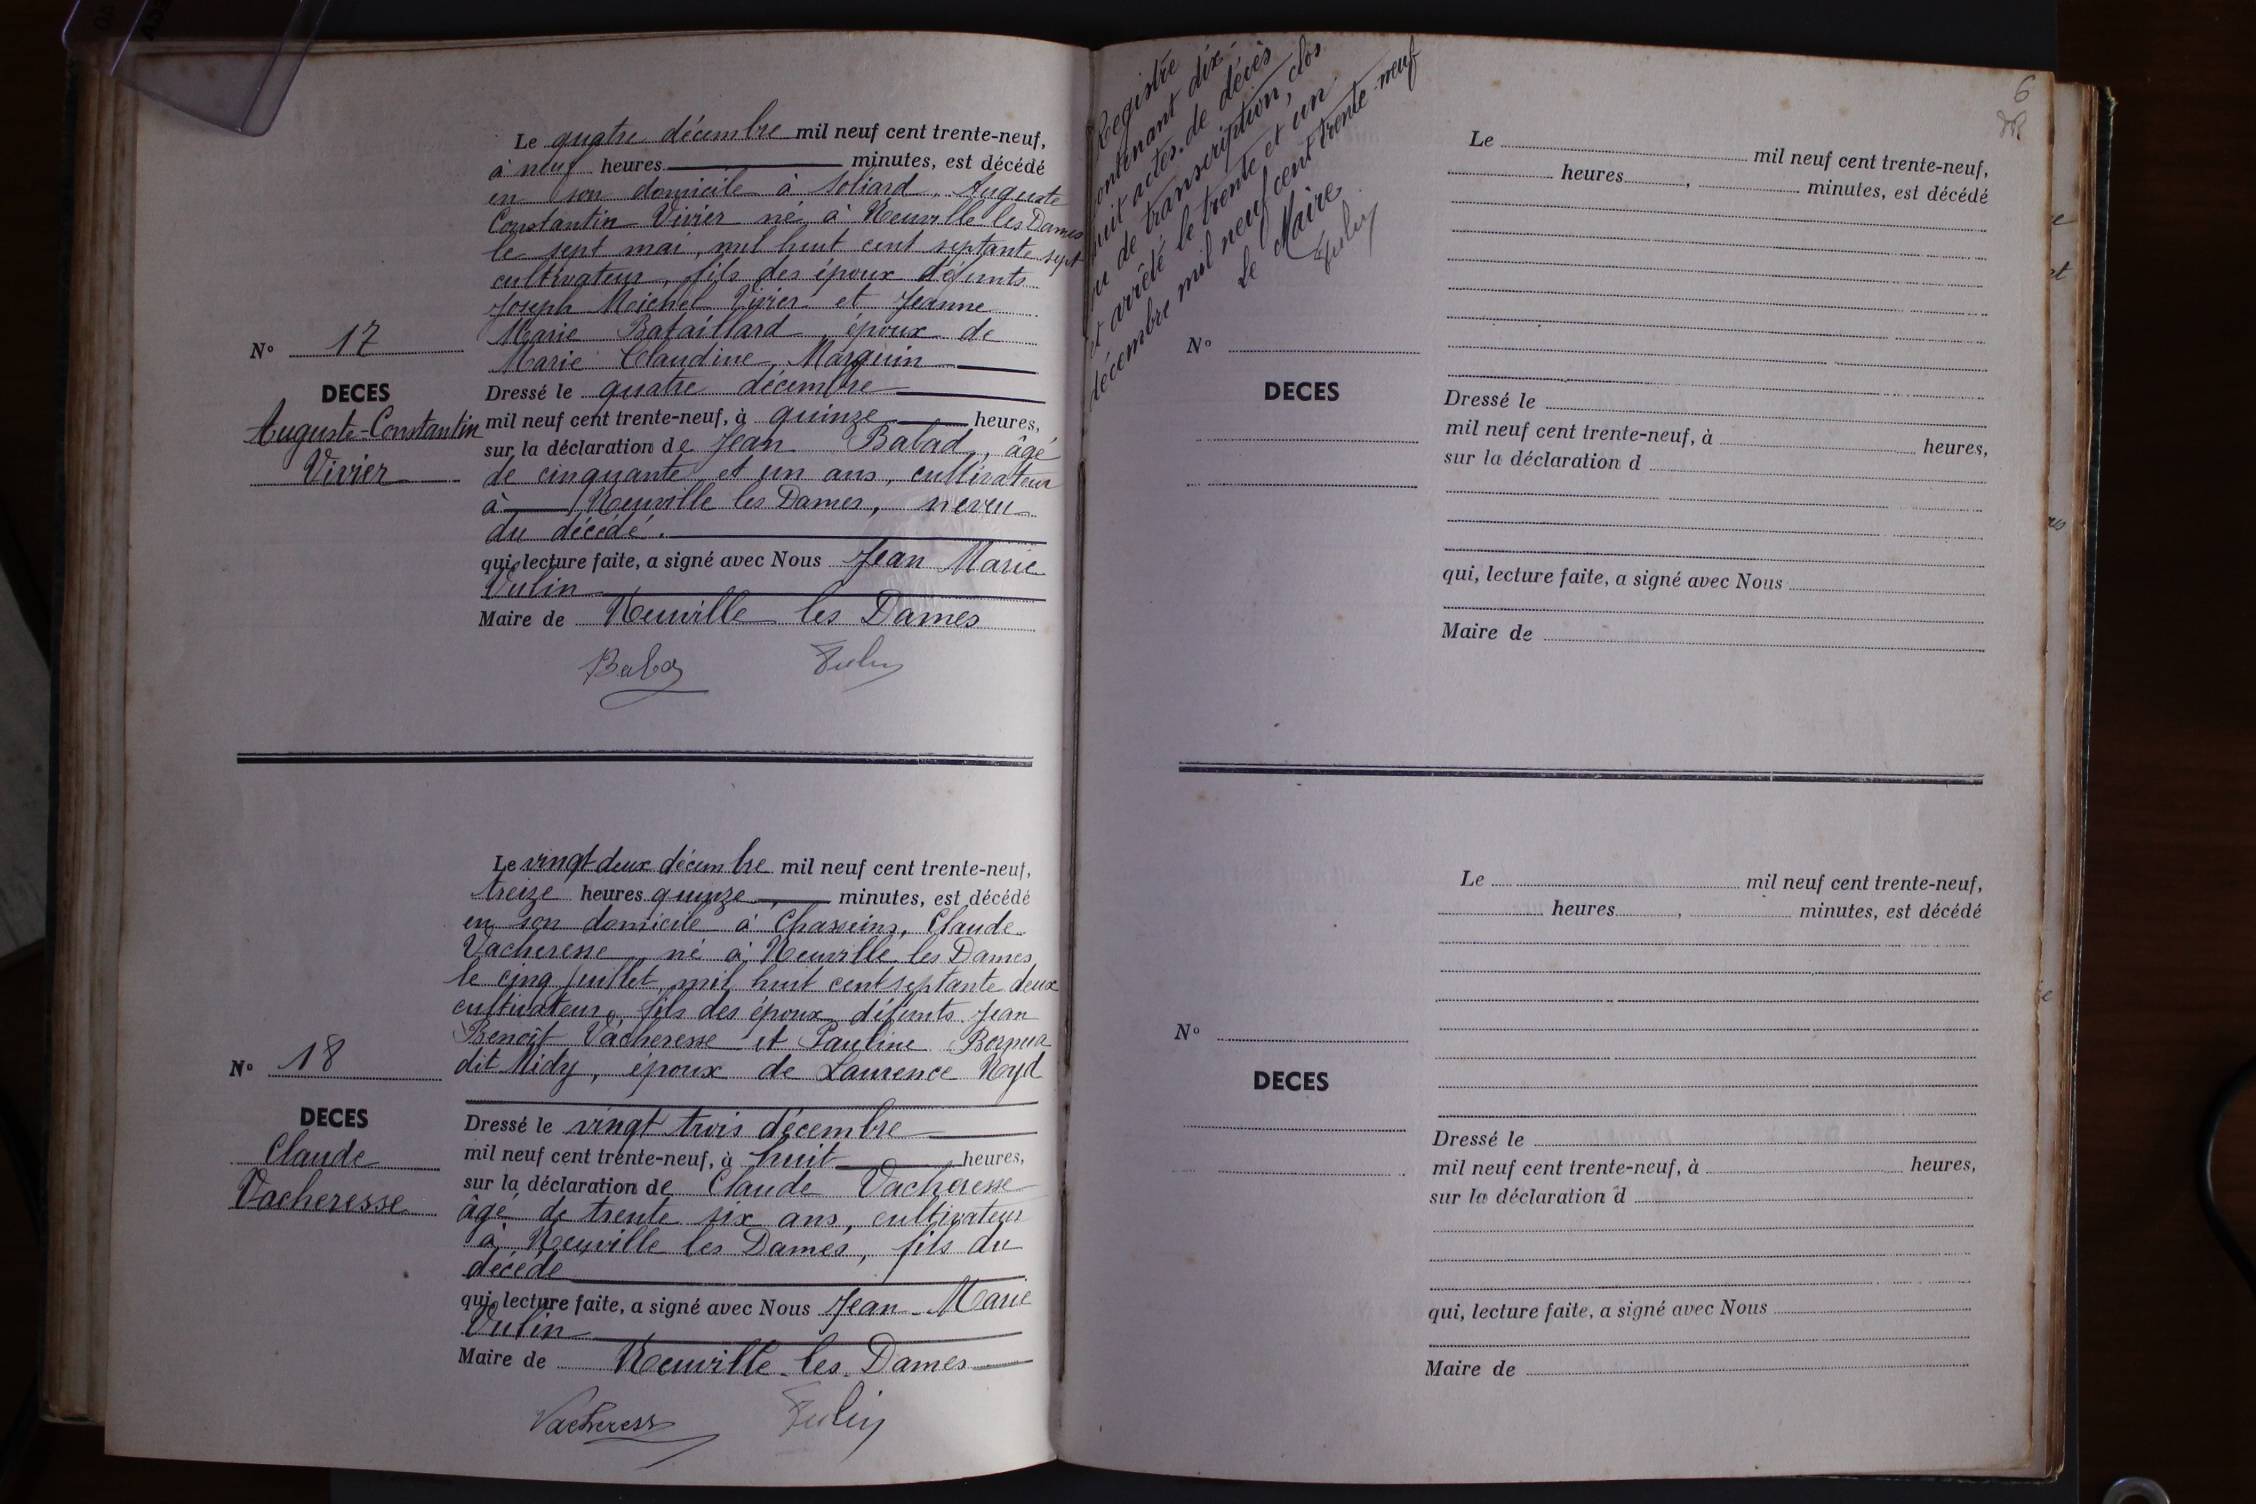 N° 17
DECES
Auguste-Constantin
Vivier
Le quatre décembre mil neuf cent trente-neuf,
à neuf heures minutes, est décédé
en son domicile à Soliard, Auguste
Constantin Vivier né à Neuville les Dames
le sept mai, mil huit cent septante sept
cultivateur, fils des époux défunts
Joseph Michel Vivier et Jeanne
Marie Bataillard, époux de
Marie Claudine Marguin
Dressé le quatre décembre
mil neuf cent trente-neuf, à quinze heures,
sur la déclaration de Jean Balad, âgé
de cinquante et un ans, cultivateur
à Neuville les Dames, neveu
du décédé.
qui, lecture faite, a signé avec Nous Jean Marie
Vulin
Maire de Neuville les Dames
Vulin
N° 18
DECES
Claude
Vacheresse
Le vingt deux décembre mil neuf cent trente-neuf,
treize heures quinze minutes, est décédé
en son domicile à Chasseins, Claude
Vacheresse né à Neuville les Dames
le cinq juillet, mil huit cent septante deux
cultivateur, fils des époux défunts Jean
Benoît Vacheresse et Pauline
dit Midy, époux de Laurence Nyd
Dressé le vingt trois décembre
mil neuf cent trente-neuf, à huit heures,
sur la déclaration de Claude Vacheresse
âgé de trente six ans, cultivateur
à Neuville les Dames, fils du
décédé
qui, lecture faite, a signé avec Nous Jean Marie
Vulin
Maire de Neuville les Dames
Vacheresse Vulin
Registre
contenant dix
huit actes de décès
ou de transcription, clos
et arrêté le trente et un
décembre mil neuf cent trente-neuf
Le Maire
Vulin
6
N°
DECES
Le mil neuf cent trente-neuf,
heures, minutes, est décédé
Dressé le
mil neuf cent trente-neuf, à heures,
sur la déclaration d
qui, lecture faite, a signé avec Nous
Maire de
N°
DECES
Le mil neuf cent trente-neuf,
heures, minutes, est décédé
Dressé le
mil neuf cent trente-neuf, à heures,
sur la déclaration d
qui, lecture faite, a signé avec Nous
Maire de